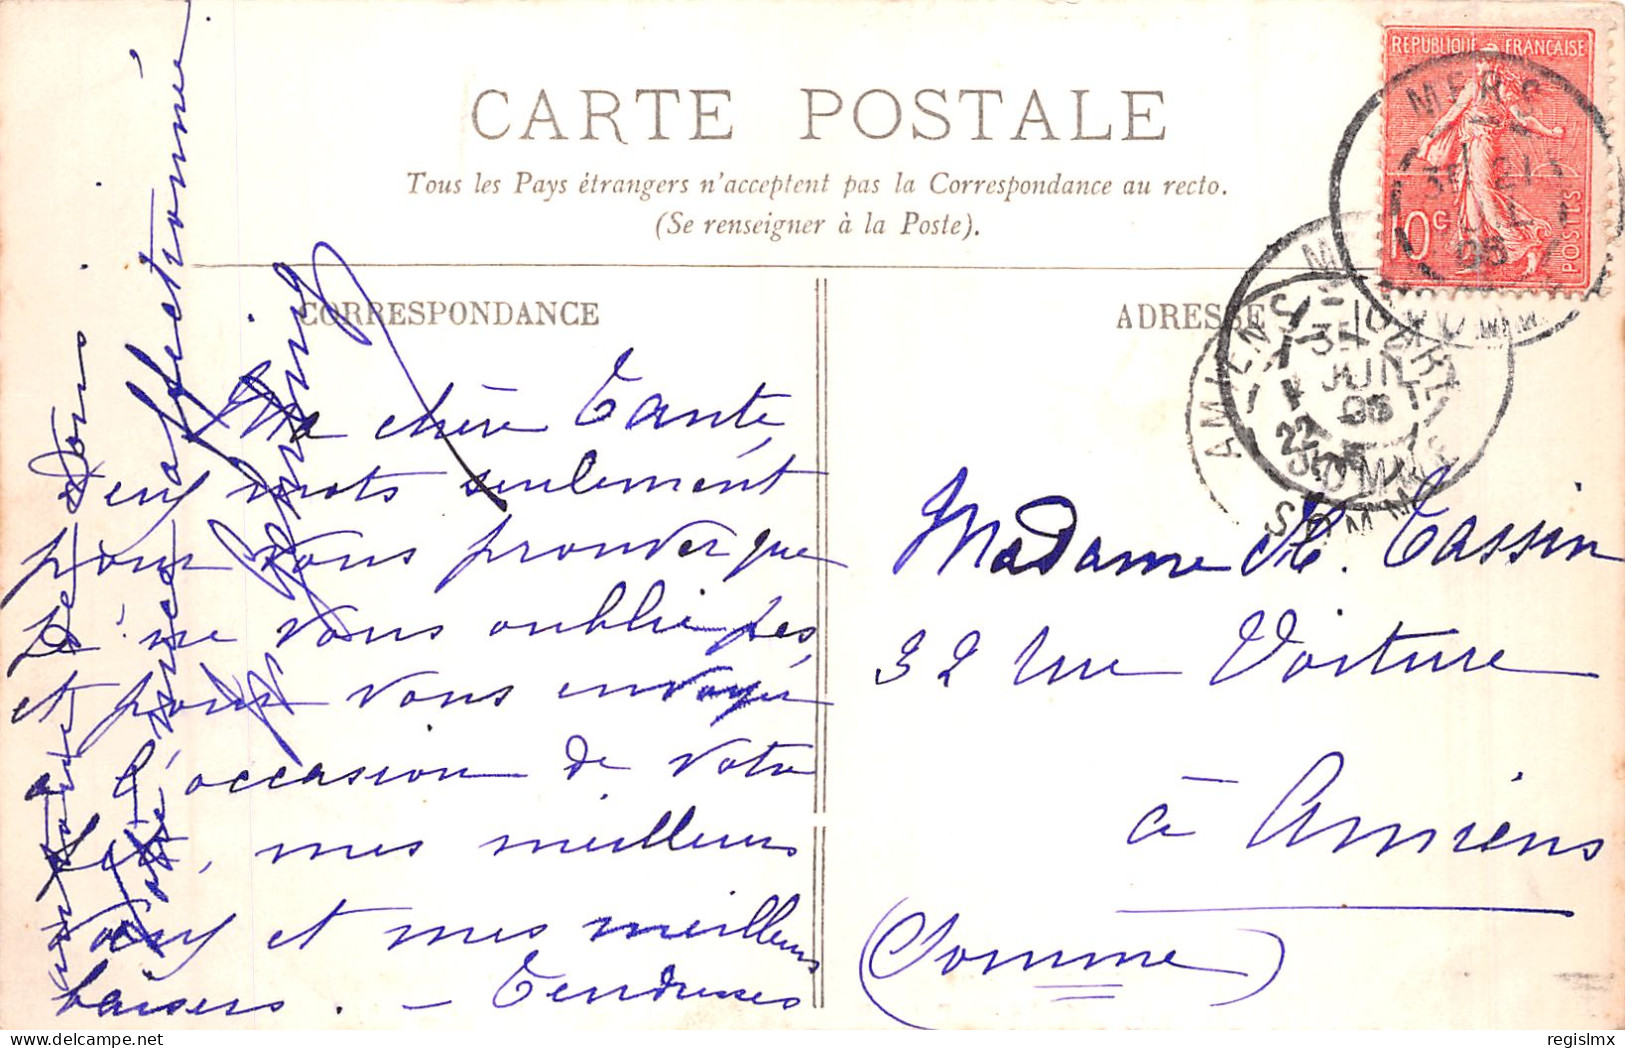 CARTE POSTALE
Tous les Pays étrangers n'acceptent pas la Correspondance au recto.
(Se renseigner à la Poste).
CORRESPONDANCE
Ma chère Tante,
Deux mots seulement
pour vous prouver que
je ne vous oublie pas,
et pour vous envoyer
à l'occasion de votre
fête, mes meilleurs
vœux et mes meilleurs
baisers. — Tendresses
à tous
Votre neveu affectionné
ADRESSE
Madame H. Cassin
32 rue Voiture
à Amiens
(Somme)
REPUBLIQUE FRANÇAISE
10c
POSTES
MERS
3E 21
05
SOMME
3E
JUIL
05
SOMME
AMIENS
22
05
SOMME
regislmx